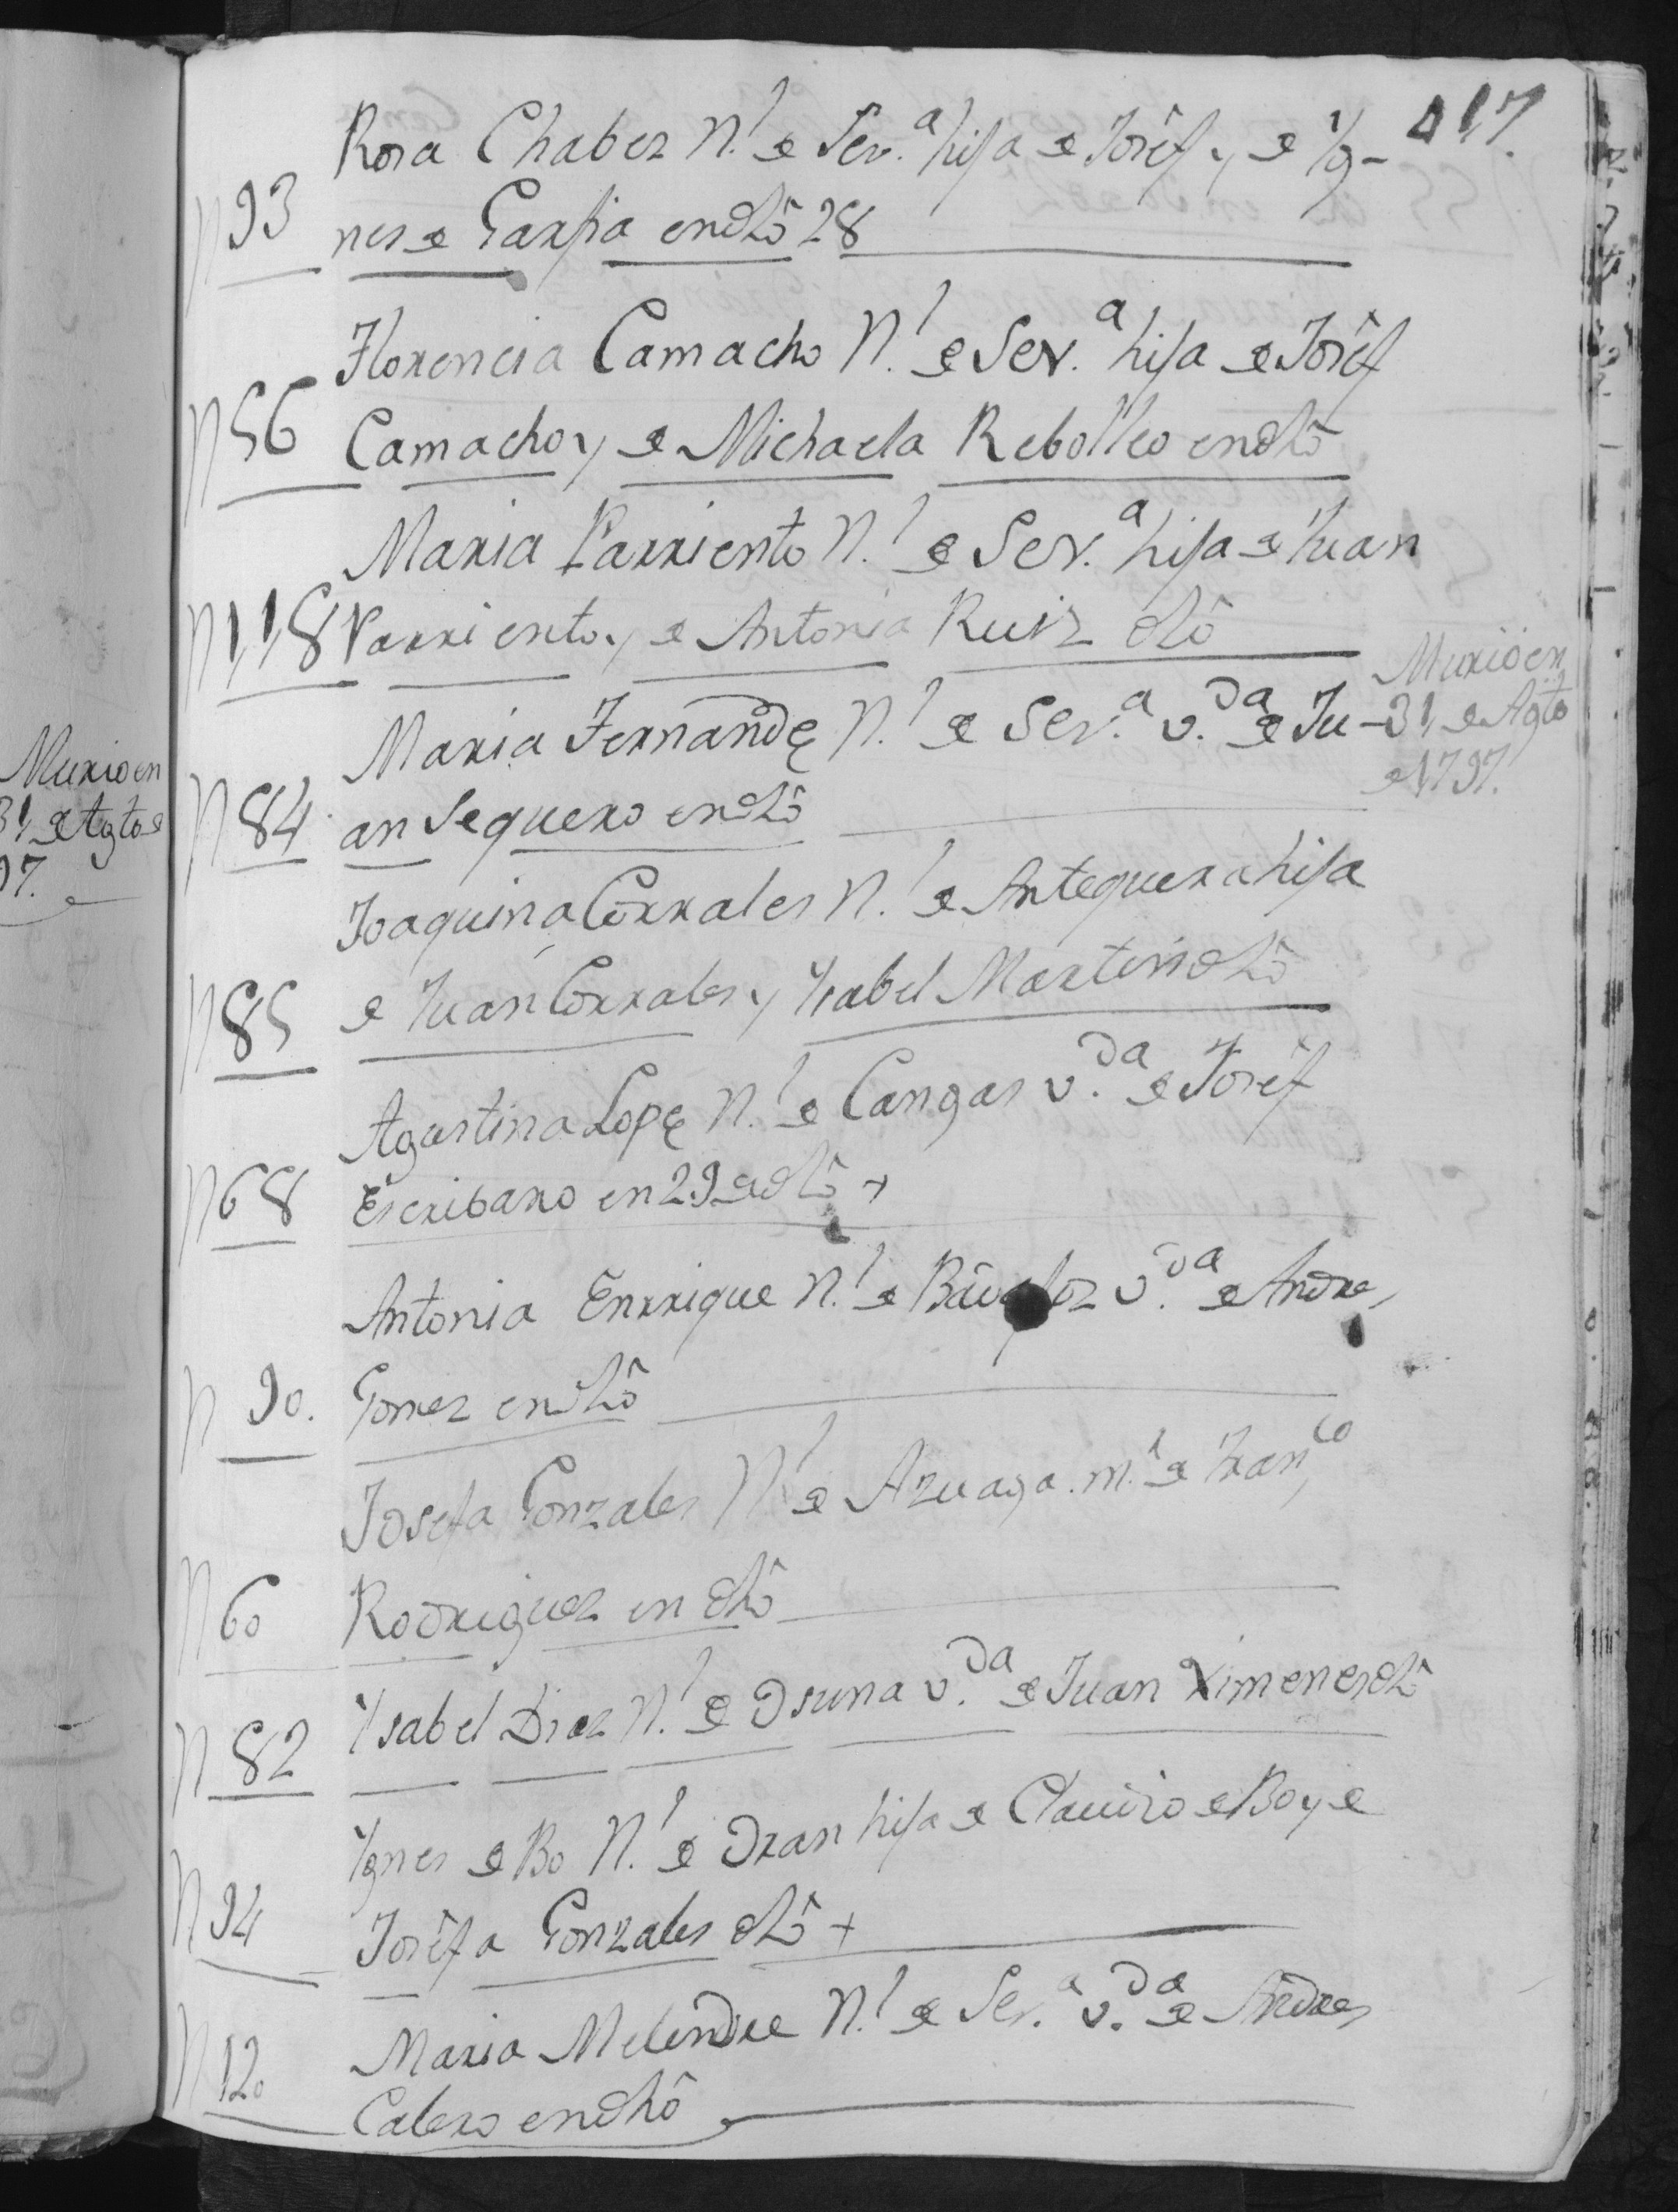 117.
Rosa Chabes N.l de Sev.a hija de Josef, y de Yg-
N 93 nes de Garfia en dho 28
Florencia Camacho N.l de Sev.a hija de Josef
N 56 Camacho y de Michaela Rebolleo en dho
Maria Barriento N.l de Sev.a hija de Juan
N 118 Varriento, y de Antonia Ruiz dho
Maria Fernandez N.l de Sev.a v.da de Ju-
Murio en
31 de Agto
de 1797.
N 84 an Sequero en dho
Joaquina Corrales N.l de Antequera hija
N 85 de Juan Corrales, y Ysabel Martin dho
Agustina Lopez N.l de Cangas v.da de Josef
N 68 Escribano en 29 de dho +
Antonia Enrrique N.l de v.da de Andres
N 90. Gomez en dho
Josefa Gonzales N.l de Azuaga. m.r de Fran.co
N 60 Rodriguez en dho
N 82 Ysabel Diaz N.l de Osuna v.da de Juan Ximenes dho
Ygnes de Bo N.l de Oran hija de Claudio de Bo y de
N 94 Josefa Gonzales dho +
Maria Melendre N.l de Sev.a v.da de Andres
N 12. Calero en dho
Murio en
31 de Agto de
97.